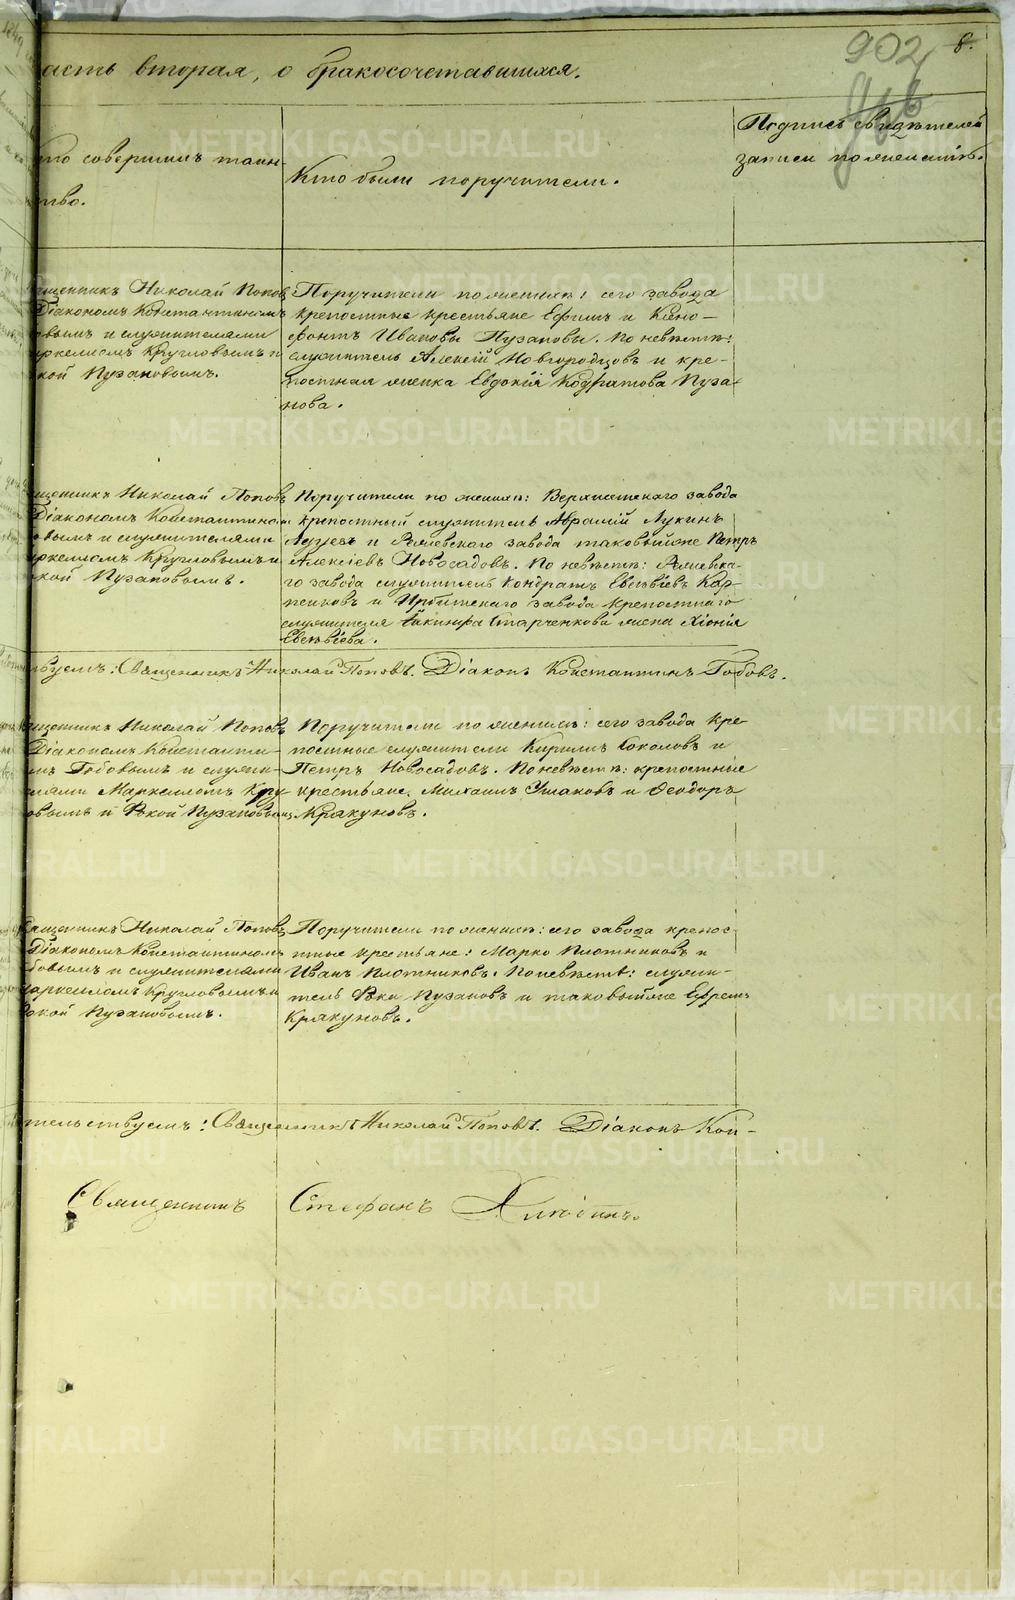 902
8.
асть вторая, о бракосочетавшихся.
то совершилъ таин-
ство.
Кто были поручители.
Подпись свидѣтелей
записи по желанію.
щенникъ Николай Поповъ
Діакономъ Константиномъ
овымъ и служителями
аркелломъ Кругловымъ и
кой Пузановымъ.
Поручители по женихѣ: сего завода
крепостные крестьяне Ефимъ и Ксено-
фонтъ Ивановы Пузановы. По невѣстѣ:
служитель Алексѣй Новгородцовъ и кре-
постная женка Евдокія Кодратова Пуза-
нова.
щенникъ Николай Поповъ
Діакономъ Константином
овымъ и служителями
аркелломъ Кругловымъ и
кой Пузановымъ.
Поручители по женихѣ: Верхисетскаго завода
крепостный служитель Аврамій Лукинъ
и Режевскаго завода таковыйже Петръ
Алексіевъ Новосадовъ. По невѣстѣ: Режевска-
го завода служитель Кондратъ Евсѣвіевъ Кар-
пенковъ и Ирбитскаго завода крепостнаго
служителя Іакинфа Старченкова жена Хіонія
Евсѣвіева.
ьствуемъ: Священникъ Николай Поповъ. Діаконъ Константинъ Гобовъ.
щенникъ Николай Поповъ
Діакономъ Константи-
мъ Гобовымъ и служи-
елями Маркелломъ Кру-
овымъ и Ѳокой Пузановым
Поручители по женихѣ: сего завода кре-
постные служители Кирилъ Соколовъ и
Петръ Новосадовъ. По невѣстѣ: крепостные
крестьяне, Михаилъ Ушаковъ и Ѳеодоръ
Кракуновъ.
ященникъ Николай Поповъ
Діакономъ Константиномъ
бовымъ и служителями
аркелломъ Кругловымъ и
окой Пузановымъ.
Поручители по женихѣ: сего завода крепос-
тные крестьяне: Марко Плотниковъ и
Иванъ Плотниковъ. По невѣстѣ: служи-
тель Ѳока Пузановъ и таковыйже Ефремъ
Кракуновъ.
тельствуемъ: Священникъ Николай Поповъ. Діаконъ Кон-
Священникъ Стефанъ Хлынинъ.
METRIKI.GASO-URAL.RU